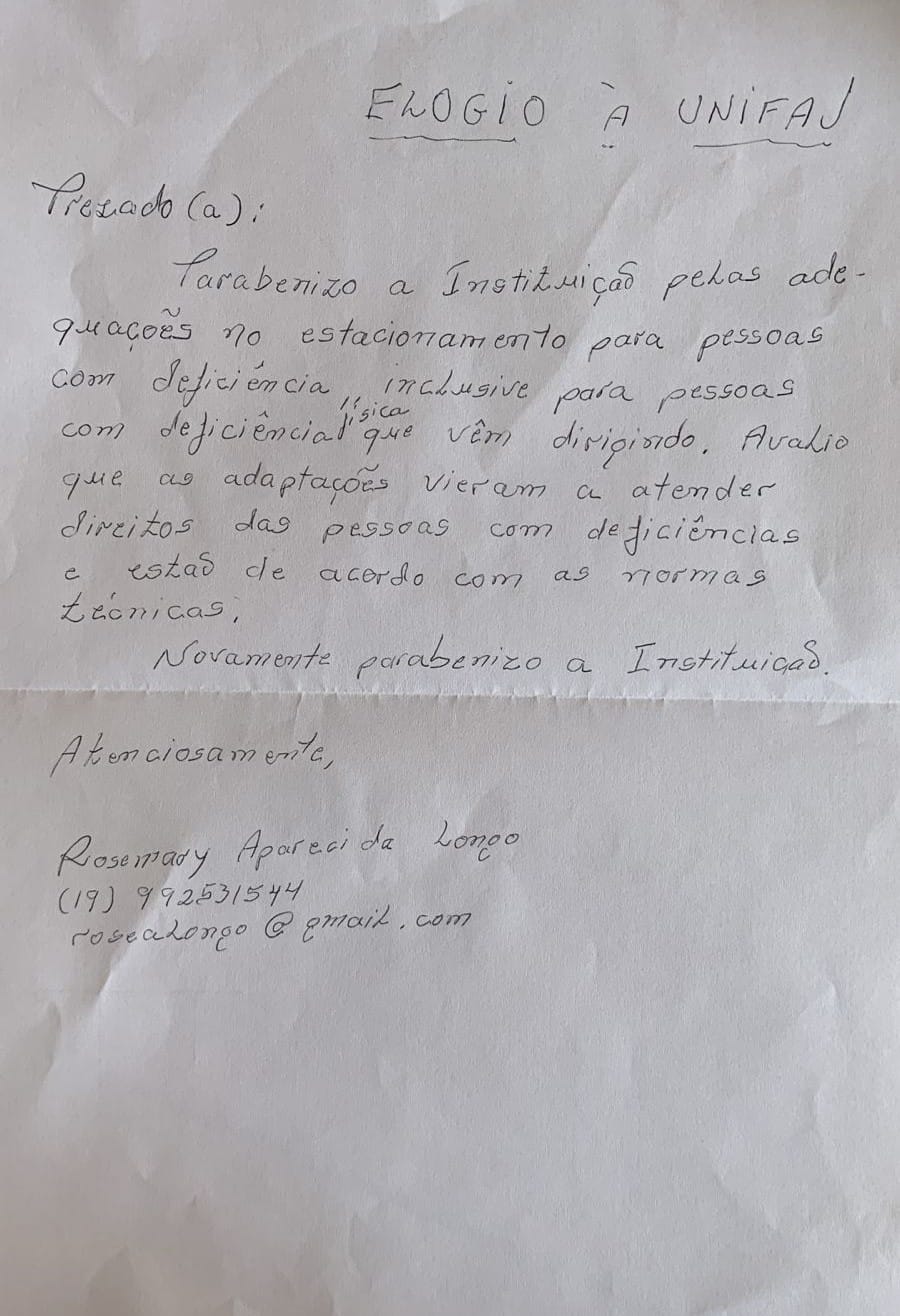 ELOGIO À UNIFAJ
Prezado (a):
Parabenizo a Instituição pelas ade-
quações no estacionamento para pessoas
com deficiência, inclusive para pessoas
com deficiência física que vêm dirigindo. Avalio
que as adaptações vieram a atender
direitos das pessoas com deficiências
e estão de acordo com as normas
técnicas.
Novamente parabenizo a Instituição.
Atenciosamente,
Rosemary Aparecida Longo
(19) 992531544
rosealongo@gmail.com